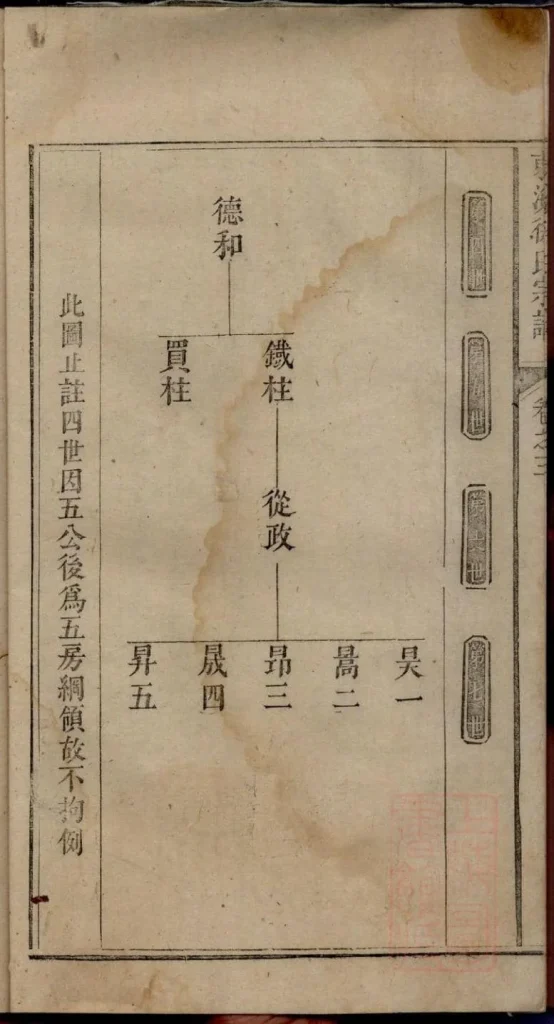 東海徐氏宗譜
卷之三
德和
鐵柱
買柱
從政
昊一
暠二
昂三
晟四
昇五
此圖止註四世因五公後爲五房綱領故不拘例